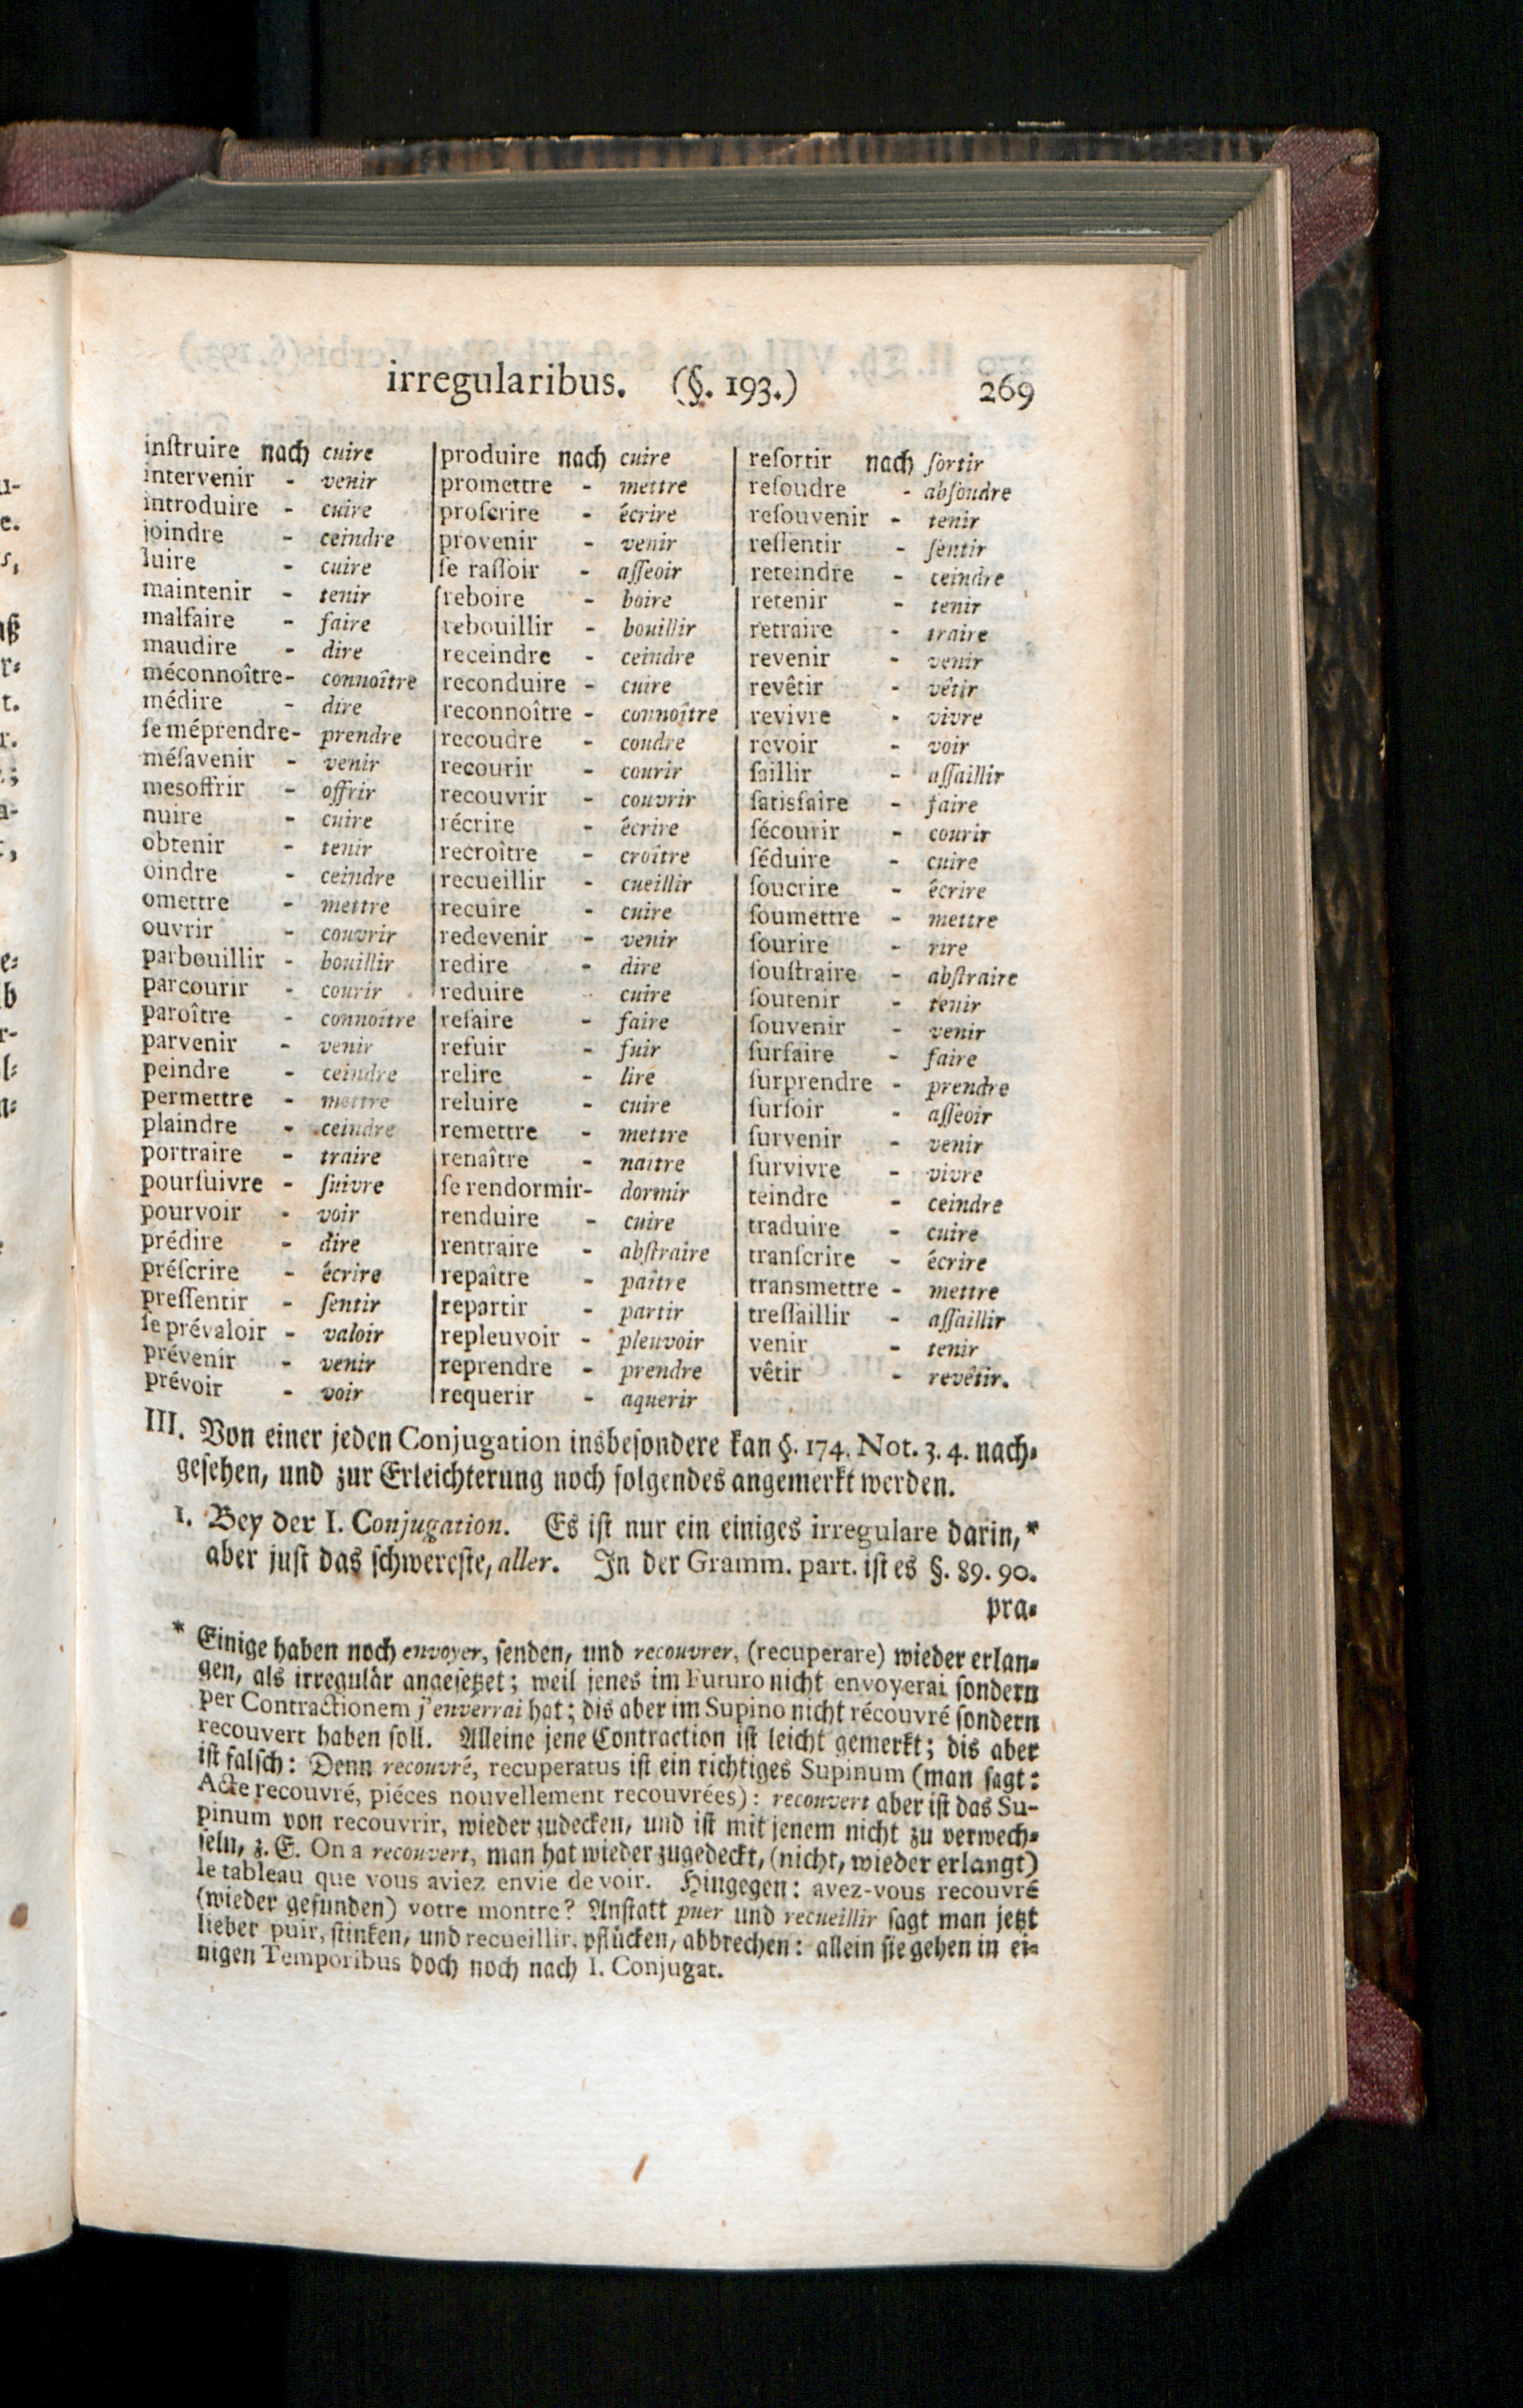 irregularibus. (§. 193.) 269
inſtruire nach cuire
intervenir - venir
introduire - cuire
joindre - ceindre
luire - cuire
maintenir - tenir
malfaire - faire
maudire - dire
méconnoître- connoître
médire - dire
ſe méprendre- prendre
méſavenir - venir
mesoffrir - offrir
nuire - cuire
obtenir - tenir
oindre - ceindre
omettre - mettre
ouvrir - couvrir
parbouillir - bouillir
parcourir - courir
paroître - connoître
parvenir - venir
peindre - ceindre
permettre - mettre
plaindre - ceindre
portraire - traire
pourſuivre - ſuivre
pourvoir - voir
prédire - dire
préſcrire - écrire
preſſentir - ſentir
ſe prévaloir - valoir
prévenir - venir
prévoir - voir
produire nach cuire
promettre - mettre
proſcrire - écrire
provenir - venir
ſe raſſoir - aſſeoir
reboire - boire
rebouillir - bouillir
receindre - ceindre
reconduire - cuire
reconnoître - connoître
recoudre - coudre
recourir - courir
recouvrir - couvrir
récrire - écrire
recroître - croître
recueillir - cueillir
recuire - cuire
redevenir - venir
redire - dire
reduire - cuire
refaire - faire
refuir - fuir
relire - lire
reluire - cuire
remettre - mettre
renaître - naître
ſe rendormir- dormir
renduire - cuire
rentraire - abſtraire
repaître - paître
repartir - partir
repleuvoir - pleuvoir
reprendre - prendre
requerir - aquerir
reſortir nach ſortir
reſoudre - abſoudre
reſouvenir - tenir
reſſentir - ſentir
reteindre - ceindre
retenir - tenir
retraire - traire
revenir - venir
revêtir - vêtir
revivre - vivre
revoir - voir
ſaillir - aſſaillir
ſatisfaire - faire
ſécourir - courir
ſéduire - cuire
ſoucrire - écrire
ſoumettre - mettre
ſourire - rire
ſouſtraire - abſtraire
ſoutenir - tenir
ſouvenir - venir
ſurfaire - faire
ſurprendre - prendre
ſurſoir - aſſeoir
ſurvenir - venir
ſurvivre - vivre
teindre - ceindre
traduire - cuire
tranſcrire - écrire
transmettre - mettre
treſſaillir - aſſaillir
venir - tenir
vêtir - revêtir.
III. Von einer jeden Conjugation insbeſondere kan §. 174. Not. 3. 4. nach-
geſehen, und zur Erleichterung noch folgendes angemerkt werden.
1. Bey der I. Conjugation. Es iſt nur ein einiges irregulare darin,*
aber juſt das ſchwereſte, aller. In der Gramm. part. iſt es §. 89. 90.
pra-
* Einige haben noch envoyer, ſenden, und recouvrer, (recuperare) wieder erlan-
gen, als irregulär angeſetzet; weil jenes im Futuro nicht envoyerai ſondern
per Contractionem j'enverrai hat; dis aber im Supino nicht récouvré ſondern
recouvert haben ſoll. Alleine jene Contraction iſt leicht gemerkt; dis aber
iſt falſch: Denn recouvré, recuperatus iſt ein richtiges Supinum (man ſagt:
Acte recouvré, piéces nouvellement recouvrées): recouvert aber iſt das Su-
pinum von recouvrir, wieder zudecken, und iſt mit jenem nicht zu verwech-
ſeln, z. E. On a recouvert, man hat wieder zugedeckt, (nicht, wieder erlangt)
le tableau que vous aviez envie de voir. Hingegen: avez-vous recouvré
(wieder gefunden) votre montre? Anſtatt puer und recueillir ſagt man jetzt
lieber puir, ſtinken, und recueillir, pflücken, abbrechen: allein ſie gehen in ei-
nigen Temporibus doch noch nach I. Conjugat.